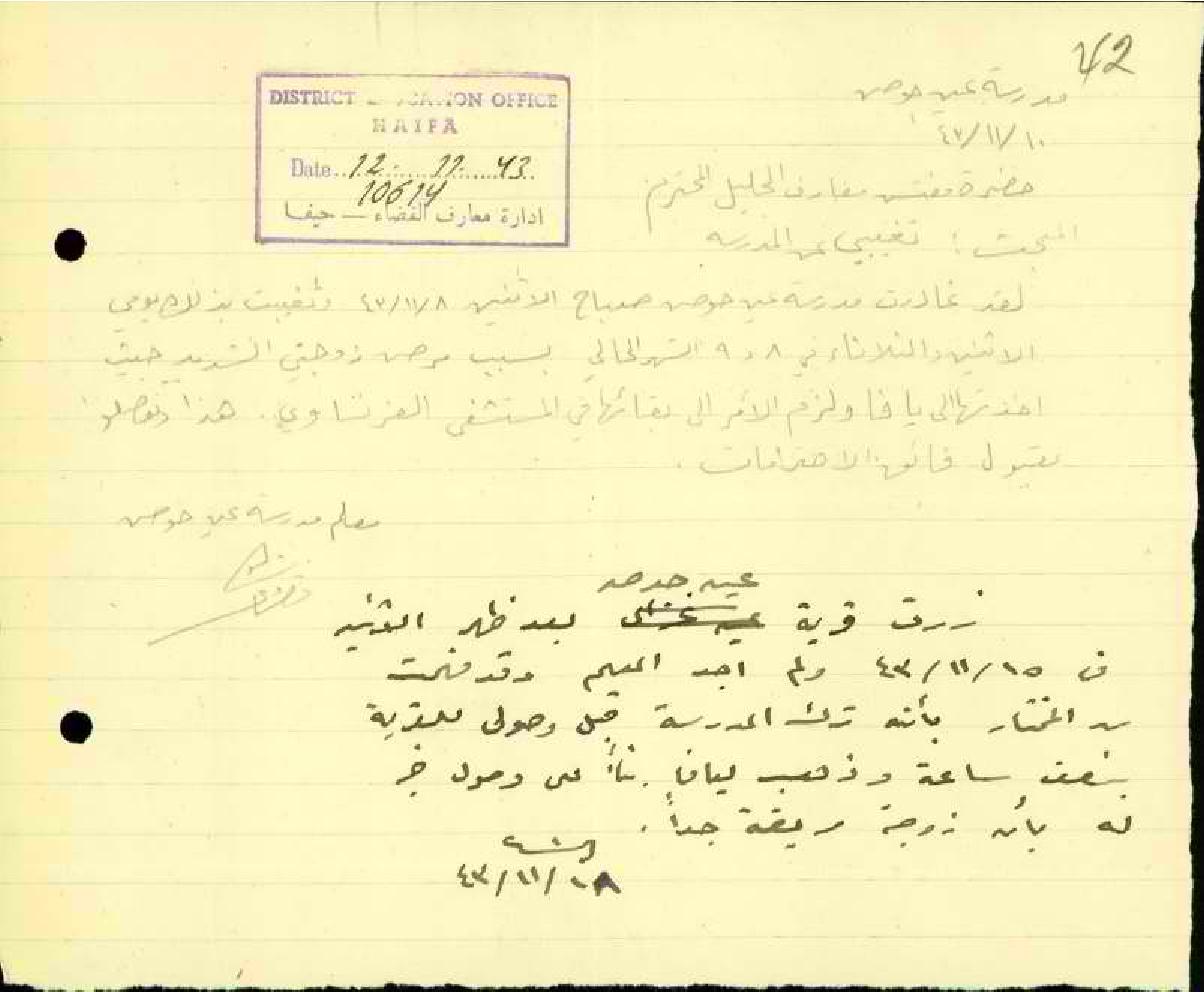 42
DISTRICT EDUCATION OFFICE
HAIFA
Date 12. 11. 43.
10614
ادارة معارف القضاء — حيفا
مدرسة عين حوض
٤٣/١١/١٠
حضرة مفتش معارف الجليل المحترم
المبحث: تغيبي عن المدرسة
لقد غادرت مدرسة عين حوض صباح الاثنين ٤٣/١١/٨ وتغيبت بذلك يومي
الاثنين والثلاثاء في ٨ و ٩ الشهر الحالي بسبب مرض زوجتي الشديد حيث
اخذتها الى يافا ولزم الامر الى بقائها في المستشفى الفرنساوي. هذا وتفضلوا
بقبول فائق الاحترامات.
معلم مدرسة عين حوض
عين حوض
زرت قرية بعد ظهر الاثنين
في ٤٣/١١/١٥ ولم اجد المعلم وقد فهمت
من المختار بأنه ترك المدرسة قبل وصولي للقرية
بنصف ساعة وذهب ليافا بناءً على وصول خبر
له بأن زوجته مريضة جداً.
٤٣/١١/١٨